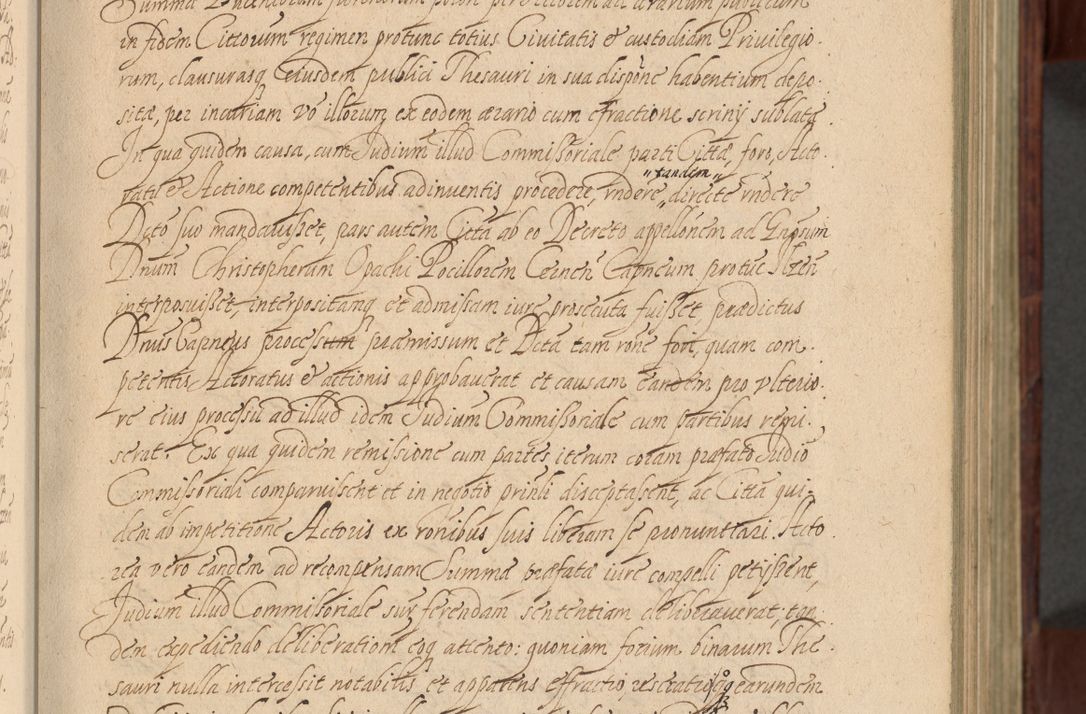 in fidem Cittorum regimen protunc totius Civitatis & custodiam Privilegio-
rum, clausurasq eiusdem publici Thesauri in sua dispōne habentium depo-
sitæ, per incuriam vō illorum ex eodem ærario cum effractione scrinij sublatæ.
In qua quidem causa, cum Iudium illud Commissoriale parti Cittæ, foro, Acto-
ratu & Actione competentibus adinventis procedere, rndere "tandem" directe rndere
Dcto suo mandavisset, pars autem Citta ab eo Decreto appellōnem ad Gnosum
Dnum Christopherum Opachi Pocillorem Capneum protūc
interposuisset, interpositamq et admissam iure prosecuta fuisset prædictus
Dnus Capneus processum præmissum et Dcta tam rōne fori, quam com-
petentis Actoratus & actionis approbaverat et causam eandem pro ulterio-
re eius processu ad illud idem Iudium Commissoriale cum partibus remi-
serat. Ex qua quidem remissione cum partes iterum coram præfato Iudio
Commissoriali comparuissent et in negotio prinli disceptassent, ac Citta qui-
dem ab impetitione Actoris ex rōnibus suis liberam se pronuntiari. Acto-
rea vero eandem ad recompensam Summæ præfatæ iure compelli petyssent,
Iudium illud Commissoriale suæ ferendam sententiam deliberaverat, tan-
dem expediendo deliberationi eoq attento: quoniam forium binarum The-
sauri nulla intercessit notabilis et apparens effractio, reseratioq earundem